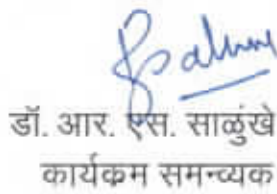 डॉ. आर. एस. साळुंखे
कार्यक्रम समन्व्यक